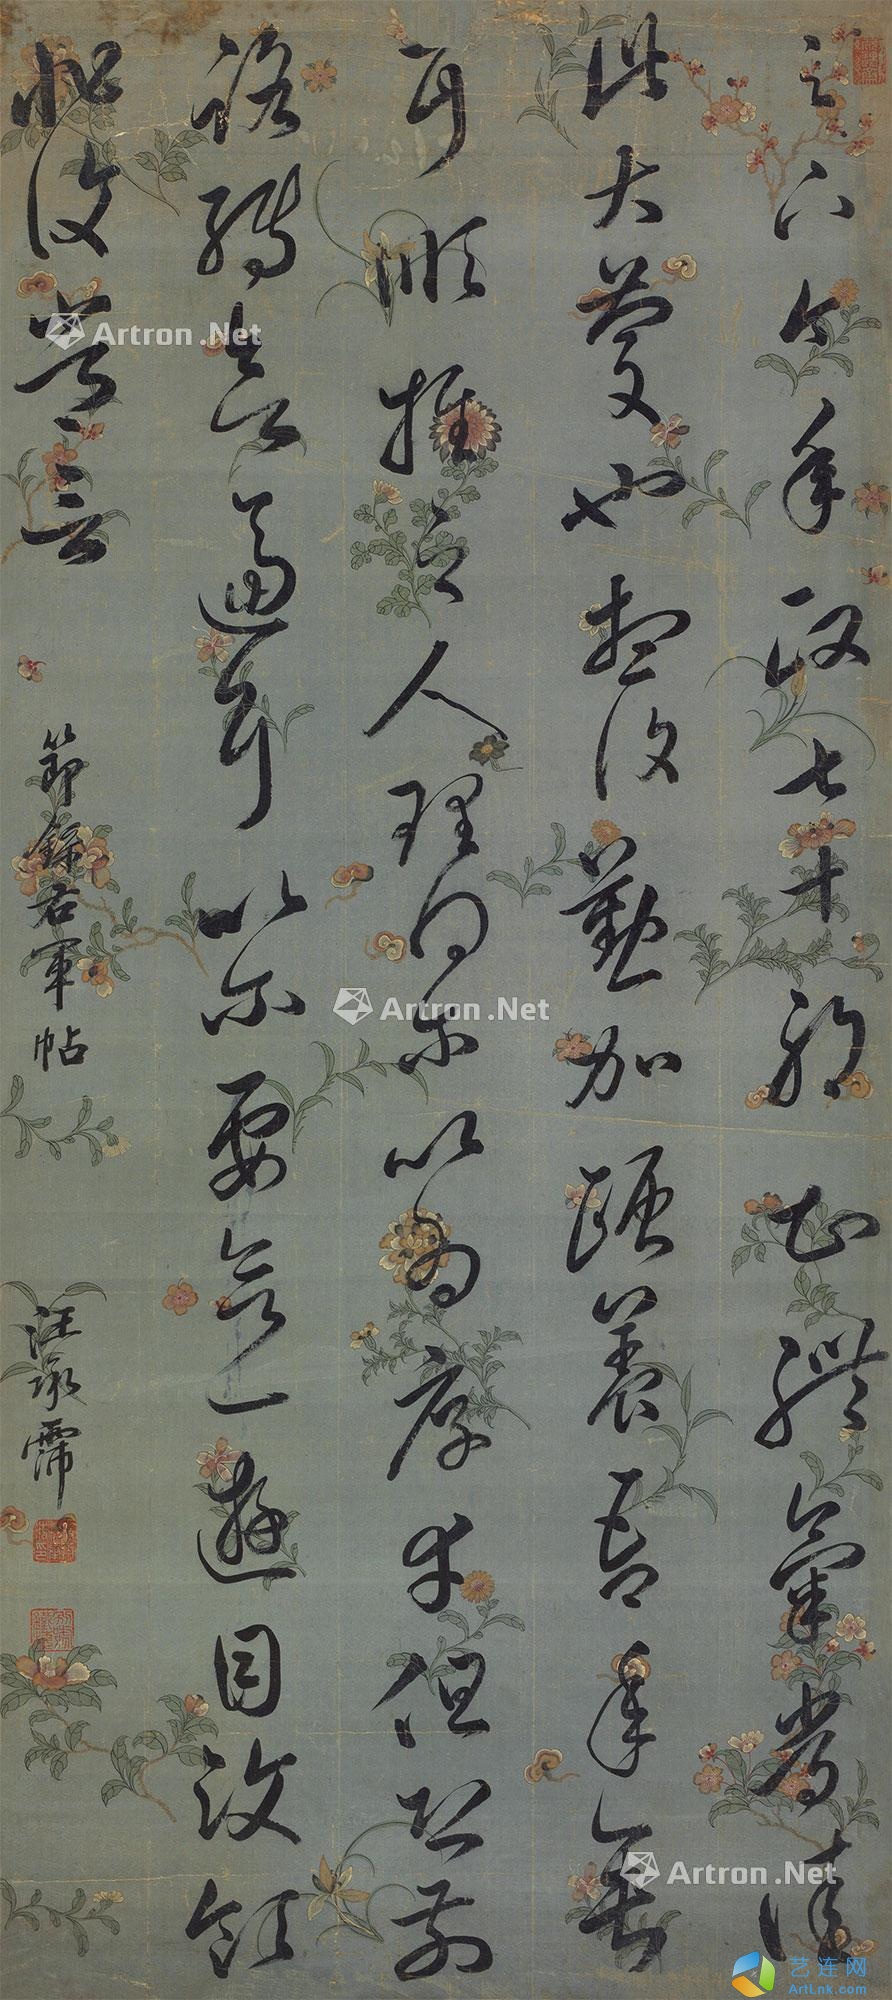 足下今年政七十耶知體氣常佳
此大慶也想復勤加頤養吾年垂
耳順推之人理得尔以為厚幸但恐前
路轉欲逼耳以尔要欲一遊目汶領
非復常言
節錄右軍帖
汪承霈
Artron.Net
Artron.Net
Artron.Net
艺连网
ArtLnk.com